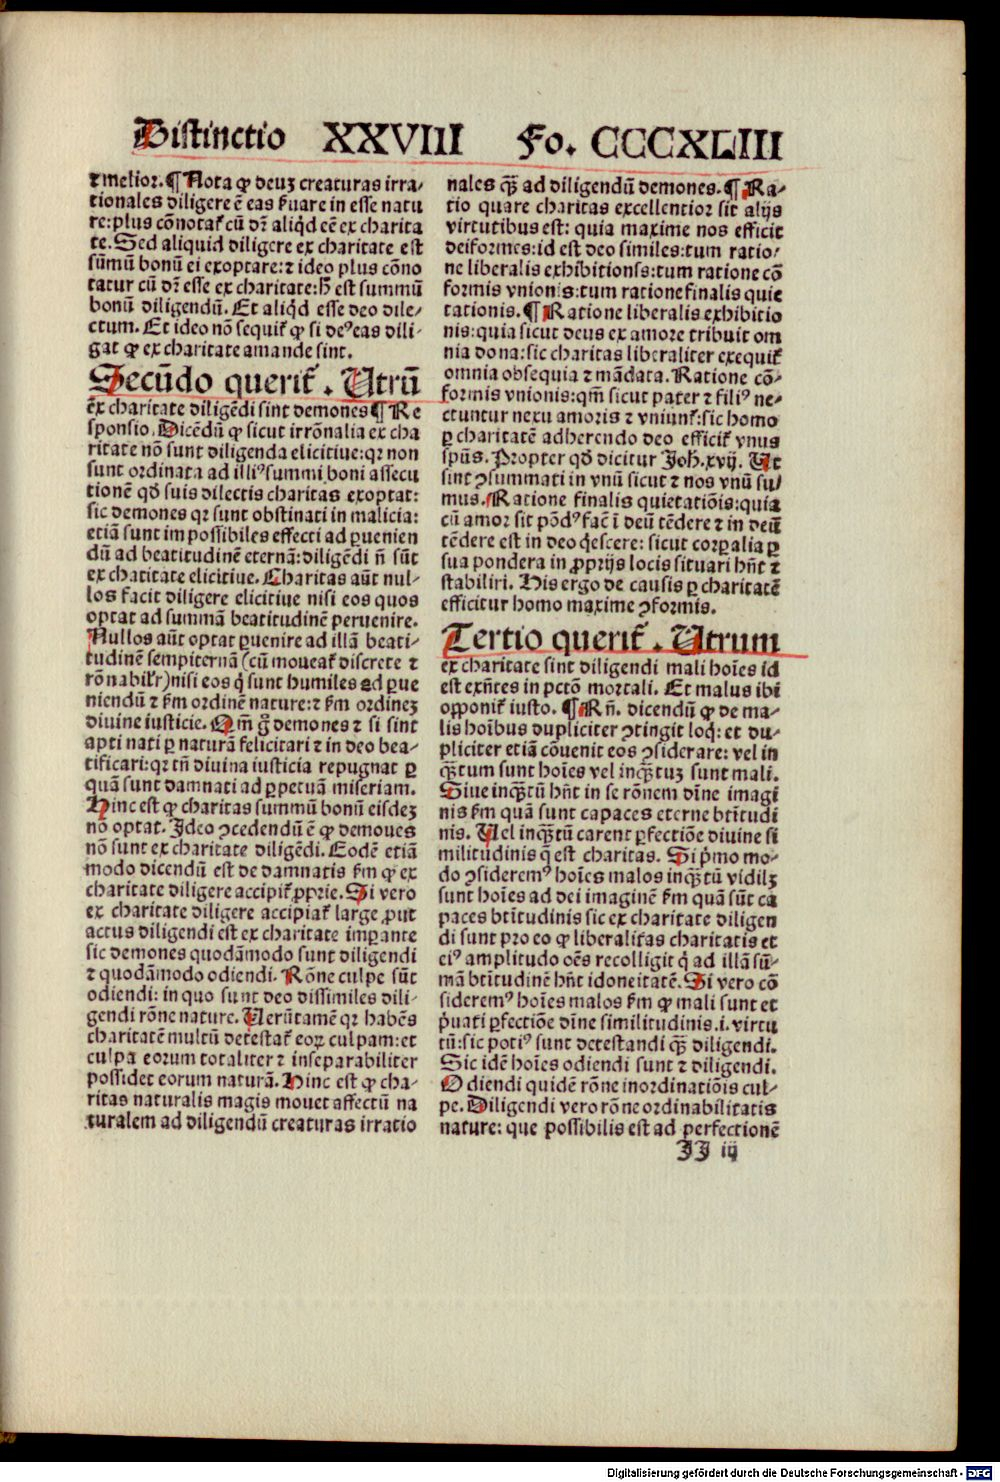 Distinctio XXVIII Fo. CCCXLIII
⁊ melior. ¶ Nota ꝙ deuʒ creaturas irra-
tionales diligere ē eas ẜuare in esse natu
re: plus cōnotat᷑ cū dr̄ aliqd̓ eē ex charita
te. Sed aliquid diligere ex charitate est
sūmū bonū ei exoptare: ⁊ ideo plus cōno
tatur cū dr̄ esse ex charitate: h̄ est summū
bonū diligendū. Et aliqd̓ esse deo dile-
ctum. Et ideo nō sequit᷑ ꝙ si deꝰ eas dili-
gat ꝙ ex charitate amande sint.
Secūdo querit᷑. Utrū
ēx charitate diligēdi sint demones ¶ Re
sponsio. Dicēdū ꝙ sicut irrōnalia ex cha
ritate nō sunt diligenda elicitiue: qr non
sunt ordinata ad illiꝰ summi boni assecu
tionē qd̓ suis dilectis charitas exoptat:
sic demones qr sunt obstinati in malicia:
etiā sunt impossibiles effecti ad ꝑuenien
dū ad beatitudinē eternā: diligēdi n̄ sūt
ex charitate elicitiue. Charitas aūt nul-
los facit diligere elicitiue nisi eos quos
optat ad summā beatitudinē peruenire.
Nullos aūt optat ꝑuenire ad illā beati-
tudinē sempiternā (cū moueat᷑ discrete ⁊
rōnabilr̄) nisi eos q̓ sunt humiles ad ꝑue
niendū ⁊ ẜm ordinē nature: ⁊ ẜm ordineʒ
diuine iusticie. Qm̄ g̊ demones ⁊ si sint
apti nati ꝑ naturā felicitari ⁊ in deo bea-
tificari: qr tn̄ diuina iusticia repugnat ꝑ
quā sunt damnati ad ꝑpetuā miseriam.
Hinc est ꝙ charitas summū bonū eisdeʒ
nō optat. Ideo ꝯcedendū ē ꝙ demoues
nō sunt ex charitate diligēdi. Eodē etiā
modo dicendū est de damnatis ẜm ꝙ ex
charitate diligere accipit᷑ ꝓprie. Si vero
ex charitate diligere accipiat᷑ large ꝓut
actus diligendi est ex charitate imꝑante
sic demones quodāmodo sunt diligendi
⁊ quodāmodo odiendi. Rōne culpe sūt
odiendi: in quo sunt deo dissimiles dili-
gendi rōne nature. Uerūtamē qr habēs
charitatē multū detestat᷑ eoꝝ culpam: et
culpa eorum totaliter ⁊ inseparabiliter
possidet eorum naturā. Hinc est ꝙ cha-
ritas naturalis magis mouet affectū na
turalem ad diligendū creaturas irratio
nales qꝫ̄ ad diligendū demones. ¶ Ra-
tio quare charitas excellentior sit alijs
virtutibus est: quia maxime nos efficit
deiformes: id est deo similes: tum ratio-
ne liberalis exhibitionis: tum ratione cō
formis vnionis: tum ratione finalis quie
tationis. ¶ Ratione liberalis exhibitio
nis: quia sicut deus ex amore tribuit om
nia dona: sic charitas liberaliter exequit᷑
omnia obsequia ⁊ mādata. Ratione cō-
formis vnionis: qm̄ sicut pater ⁊ filiꝰ ne-
ctuntur nexu amoris ⁊ vniunt᷑: sic homo
ꝑ charitatē adherendo deo efficit᷑ vnus
spūs. Propter qd̓ dicitur Joh. xvij. Ut
sint ꝯsummati in vnū sicut ⁊ nos vnū su-
mus. Ratione finalis quietatiōis: quia
cū amor sit pōdꝰ fac̄ i deū tēdere ⁊ in deū
tēdere est in deo q̓escere: sicut corꝑalia ꝑ
sua pondera in ꝓprijs locis situari hn̄t ⁊
stabiliri. His ergo de causis ꝑ charitatē
efficitur homo maxime ꝯformis.
Tertio querit᷑. Utrum
ex charitate sint diligendi mali hoīes id
est exn̄tes in pctō mortali. Et malus ibi
opponit᷑ iusto. ¶ Rn̄. dicendū ꝙ de ma-
lis hoībus dupliciter ꝯtingit loq̓: et du-
pliciter etiā cōuenit eos ꝯsiderare: vel in
qꝫ̄tum sunt hoīes vel inqꝫ̄tuʒ sunt mali.
Siue inqꝫ̄tū hn̄t in se rōnem dīne imagi
nis ẜm quā sunt capaces eterne btītudi
nis. Uel inqꝫ̄tū carent ꝑfectiōe diuine si
militudinis q̄ est charitas. Si p̓mo mo-
do ꝯsideremꝰ hoīes malos inqꝫ̄tū vidilʒ
sunt hoīes ad dei imaginē ẜm quā sūt ca
paces btītudinis sic ex charitate diligen
di sunt pro eo ꝙ liberalitas charitatis et
eiꝰ amplitudo oēs recolligit q̓ ad illā sū-
mā btītudinē hn̄t idoneitatē. Si vero cō
sideremꝰ hoīes malos ẜm ꝙ mali sunt et
p̓uati ꝑfectiōe dīne similitudinis. i. virtu
tū: sic potiꝰ sunt detestandi qꝫ̄ diligendi.
Sic idē hoīes odiendi sunt ⁊ diligendi.
Odiendi quidē rōne inordinatiōis cul-
pe. Diligendi vero rōne ordinabilitatis
nature: que possibilis est ad perfectionē
JJ iij
Digitalisierung gefördert durch die Deutsche Forschungsgemeinschaft - DFG